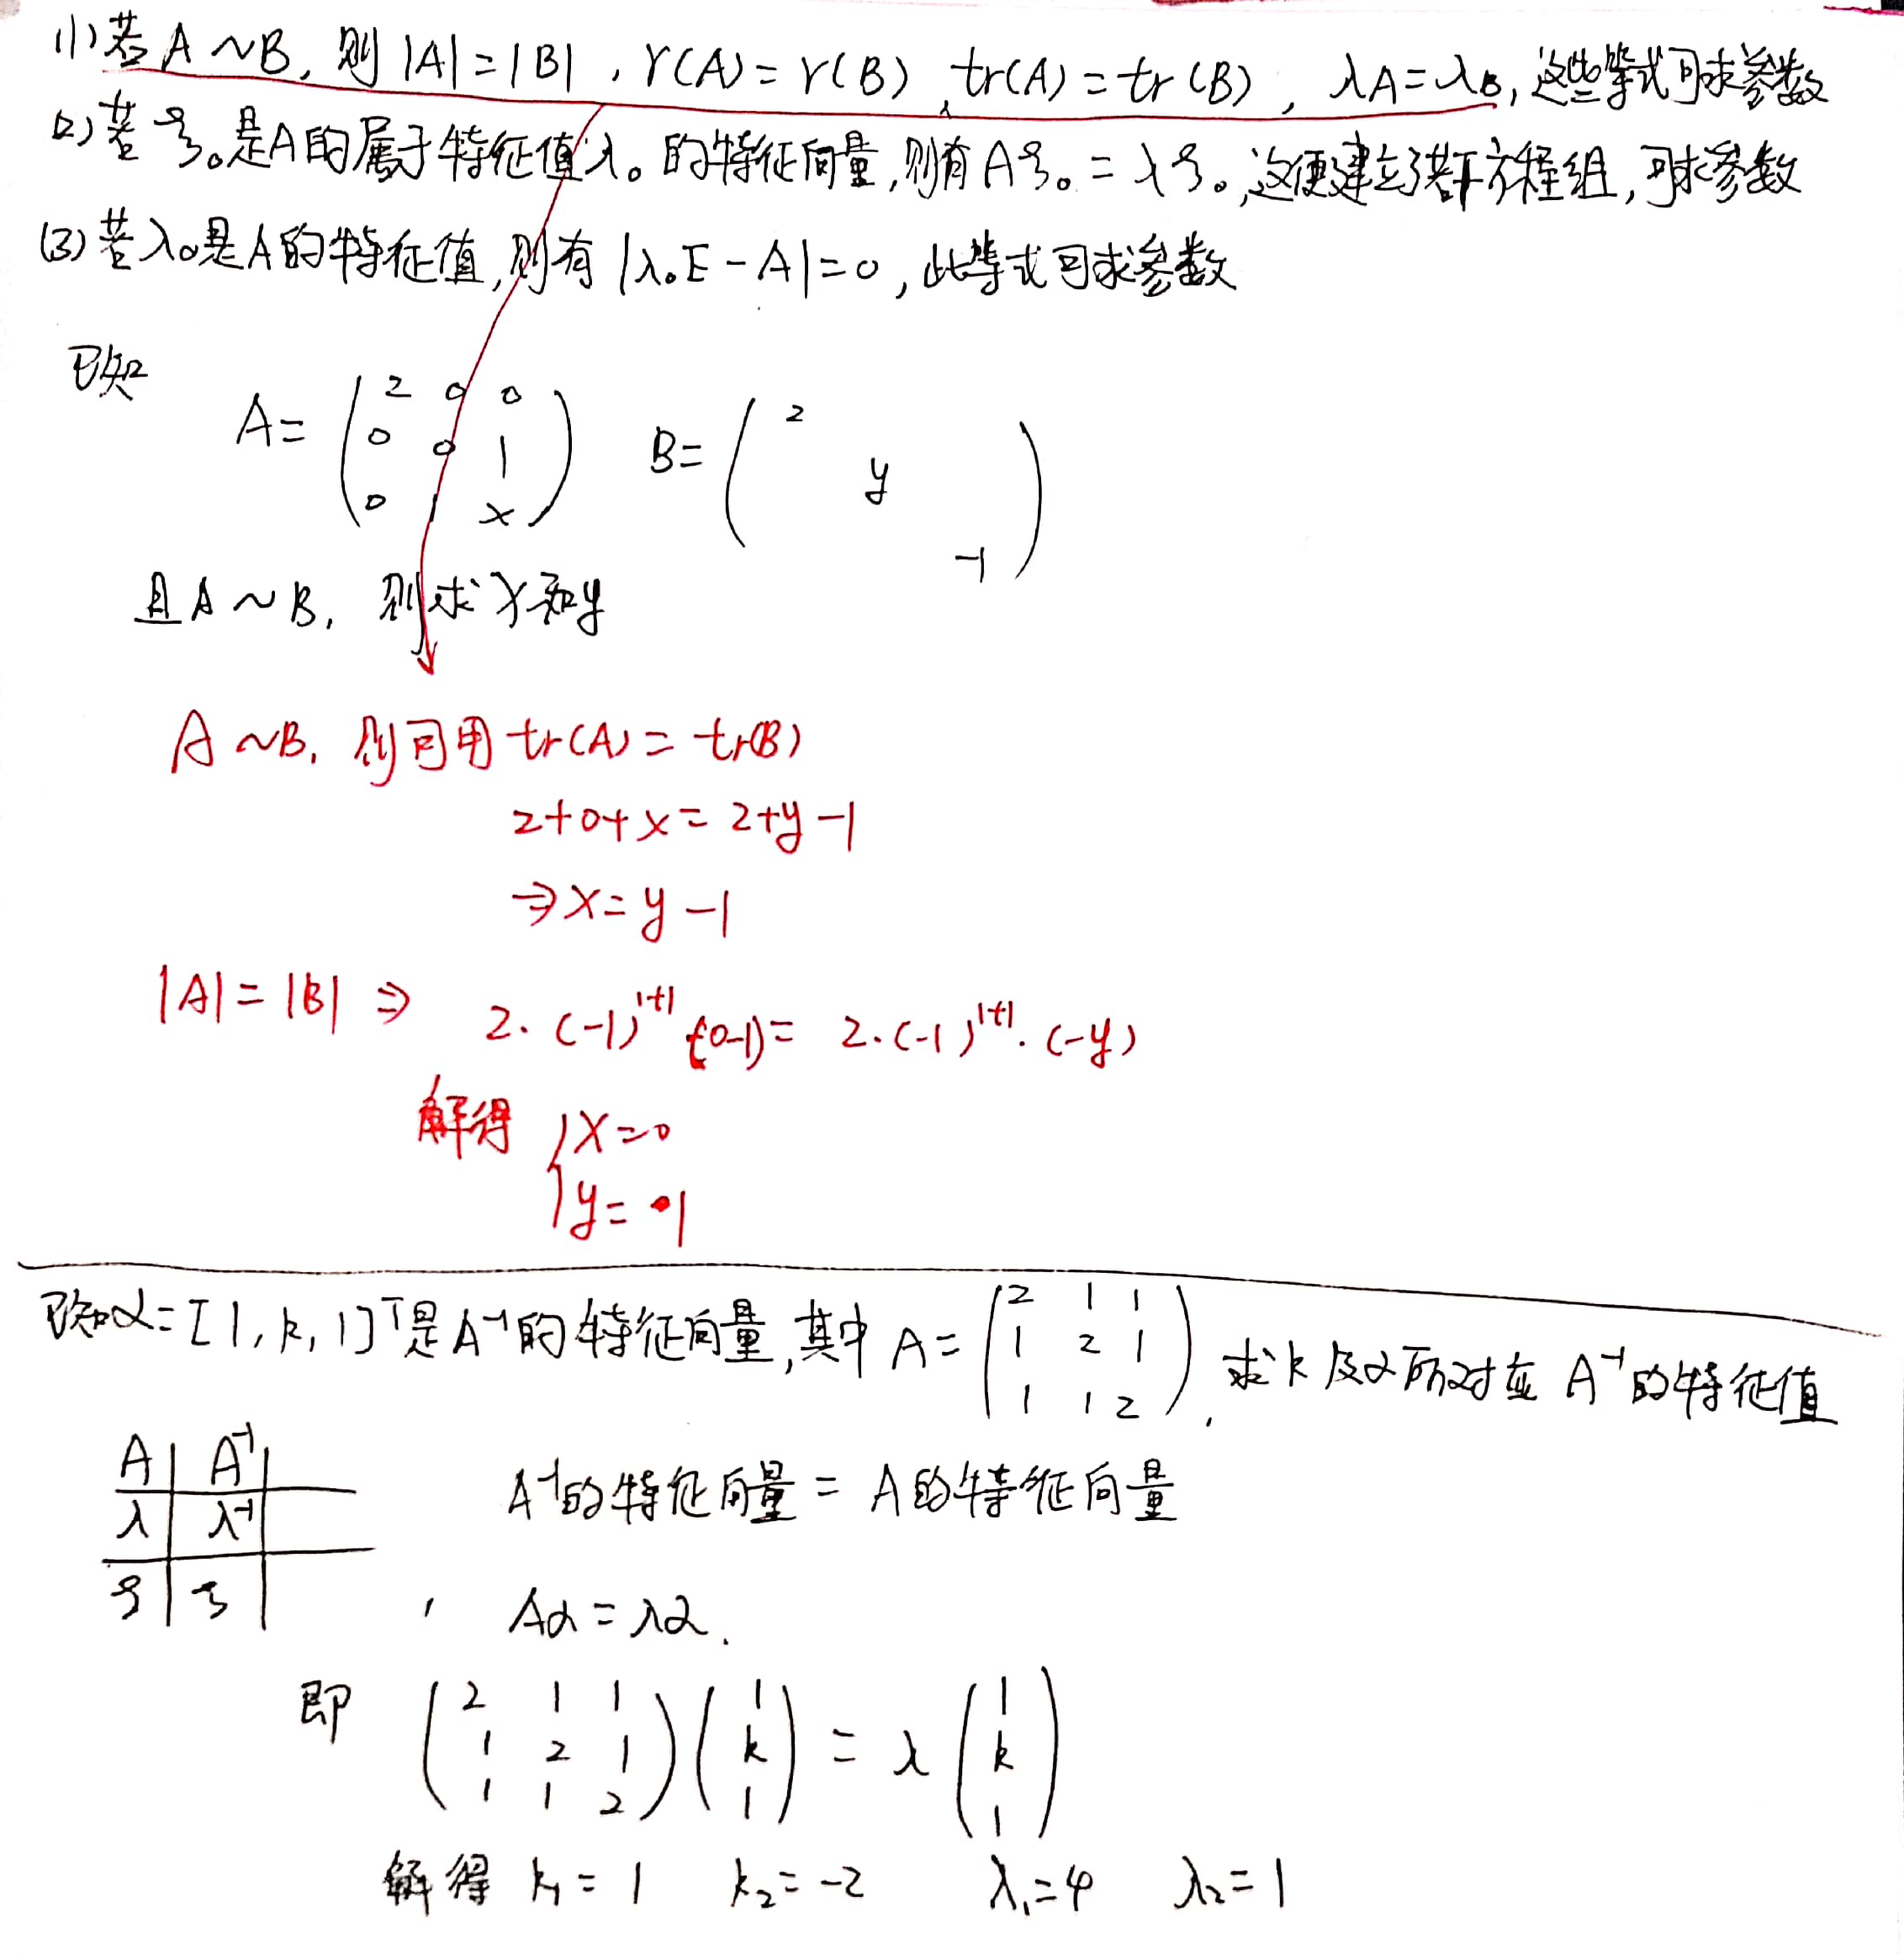 (1) 若A~B, 则|A|=|B|, r(A)=r(B), tr(A)=tr(B), λA=λB, 这些等式可求参数
(2) 若ξ₀是A的属于特征值λ₀的特征向量,则有Aξ₀=λξ₀,这便建立了若干方程组,可求参数
(3) 若λ₀是A的特征值,则有|λ₀E-A|=0,此等式可求参数
已知
A= ( 2 0 0
0 0 1
0 1 x ) B= ( 2
y
-1 )
且A~B, 则求x和y
A~B, 则可用 tr(A)=tr(B)
2+0+x=2+y-1
⇒x=y-1
|A|=|B| ⇒ 2·(-1)¹⁺¹·(0-1)= 2·(-1)¹⁺¹·(-y)
解得 { x=0
y=1
已知α=[1,k,1]ᵀ是A⁻¹的特征向量,其中A= ( 2 1 1
1 2 1
1 1 2 ), 求k及α所对应A⁻¹的特征值
A | A⁻¹
λ | λ⁻¹
ξ | ξ
A⁻¹的特征向量=A的特征向量
, Aα=λα.
即 ( 2 1 1
1 2 1
1 1 2 ) ( 1
k
1 ) = λ ( 1
k
1 )
解得 k₁=1 k₂=-2 λ₁=4 λ₂=1